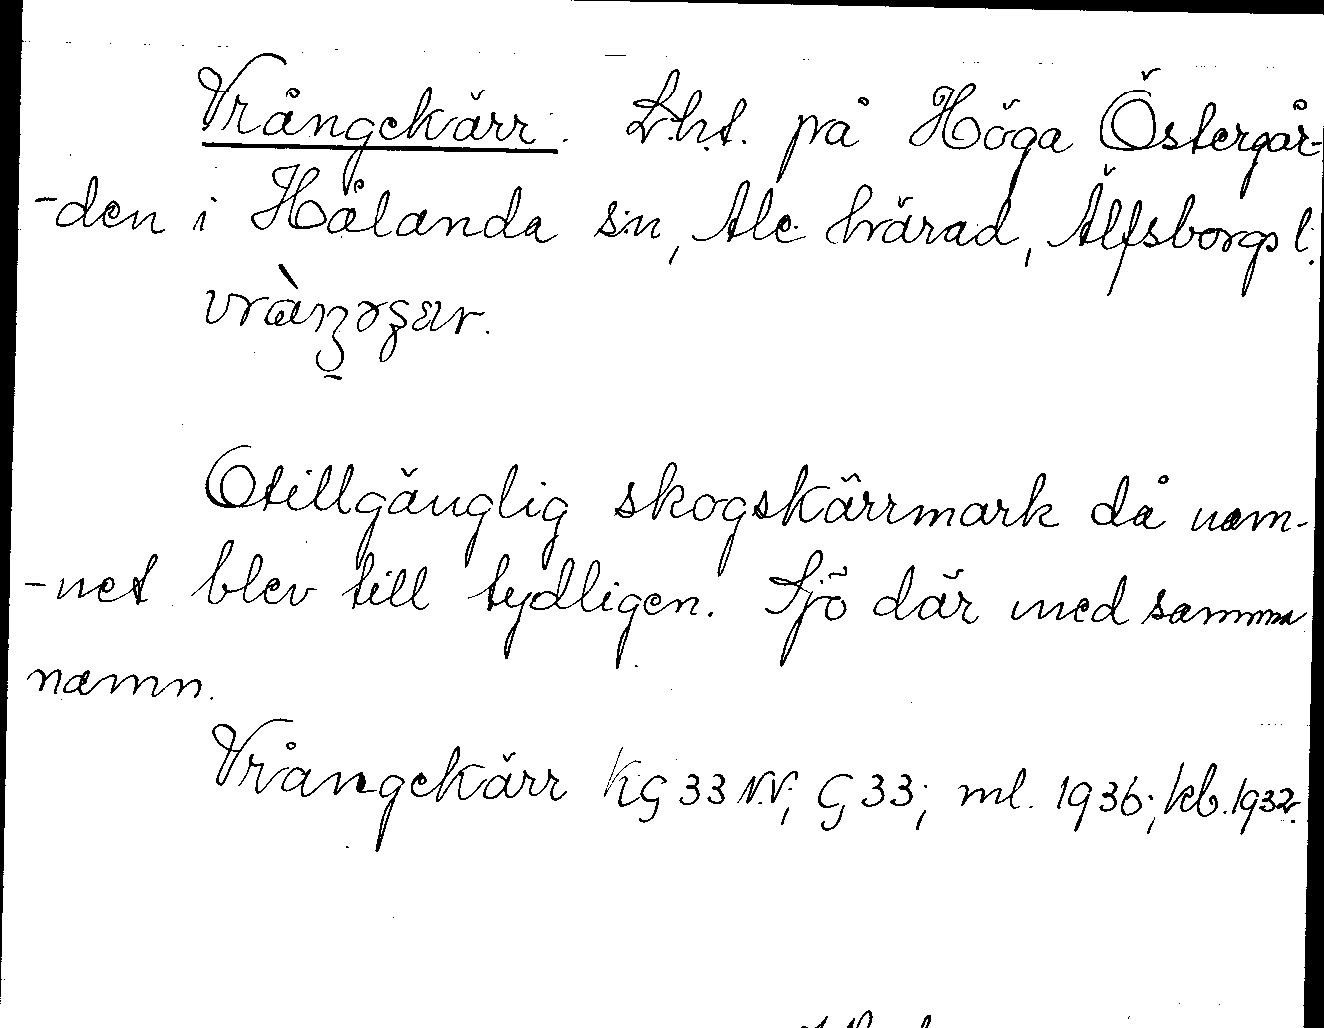 Vrångekärr. Lht. på Höga Östergår-
-den i Hålanda sn, Ale härad, Älfsborgs l.
Otillgänglig skogskärrmark då nam-
-net blev till tydligen. Sjö där med samma
namn.
Vrångekärr KG 33 NV; G 33; ml. 1936; kb. 1932.